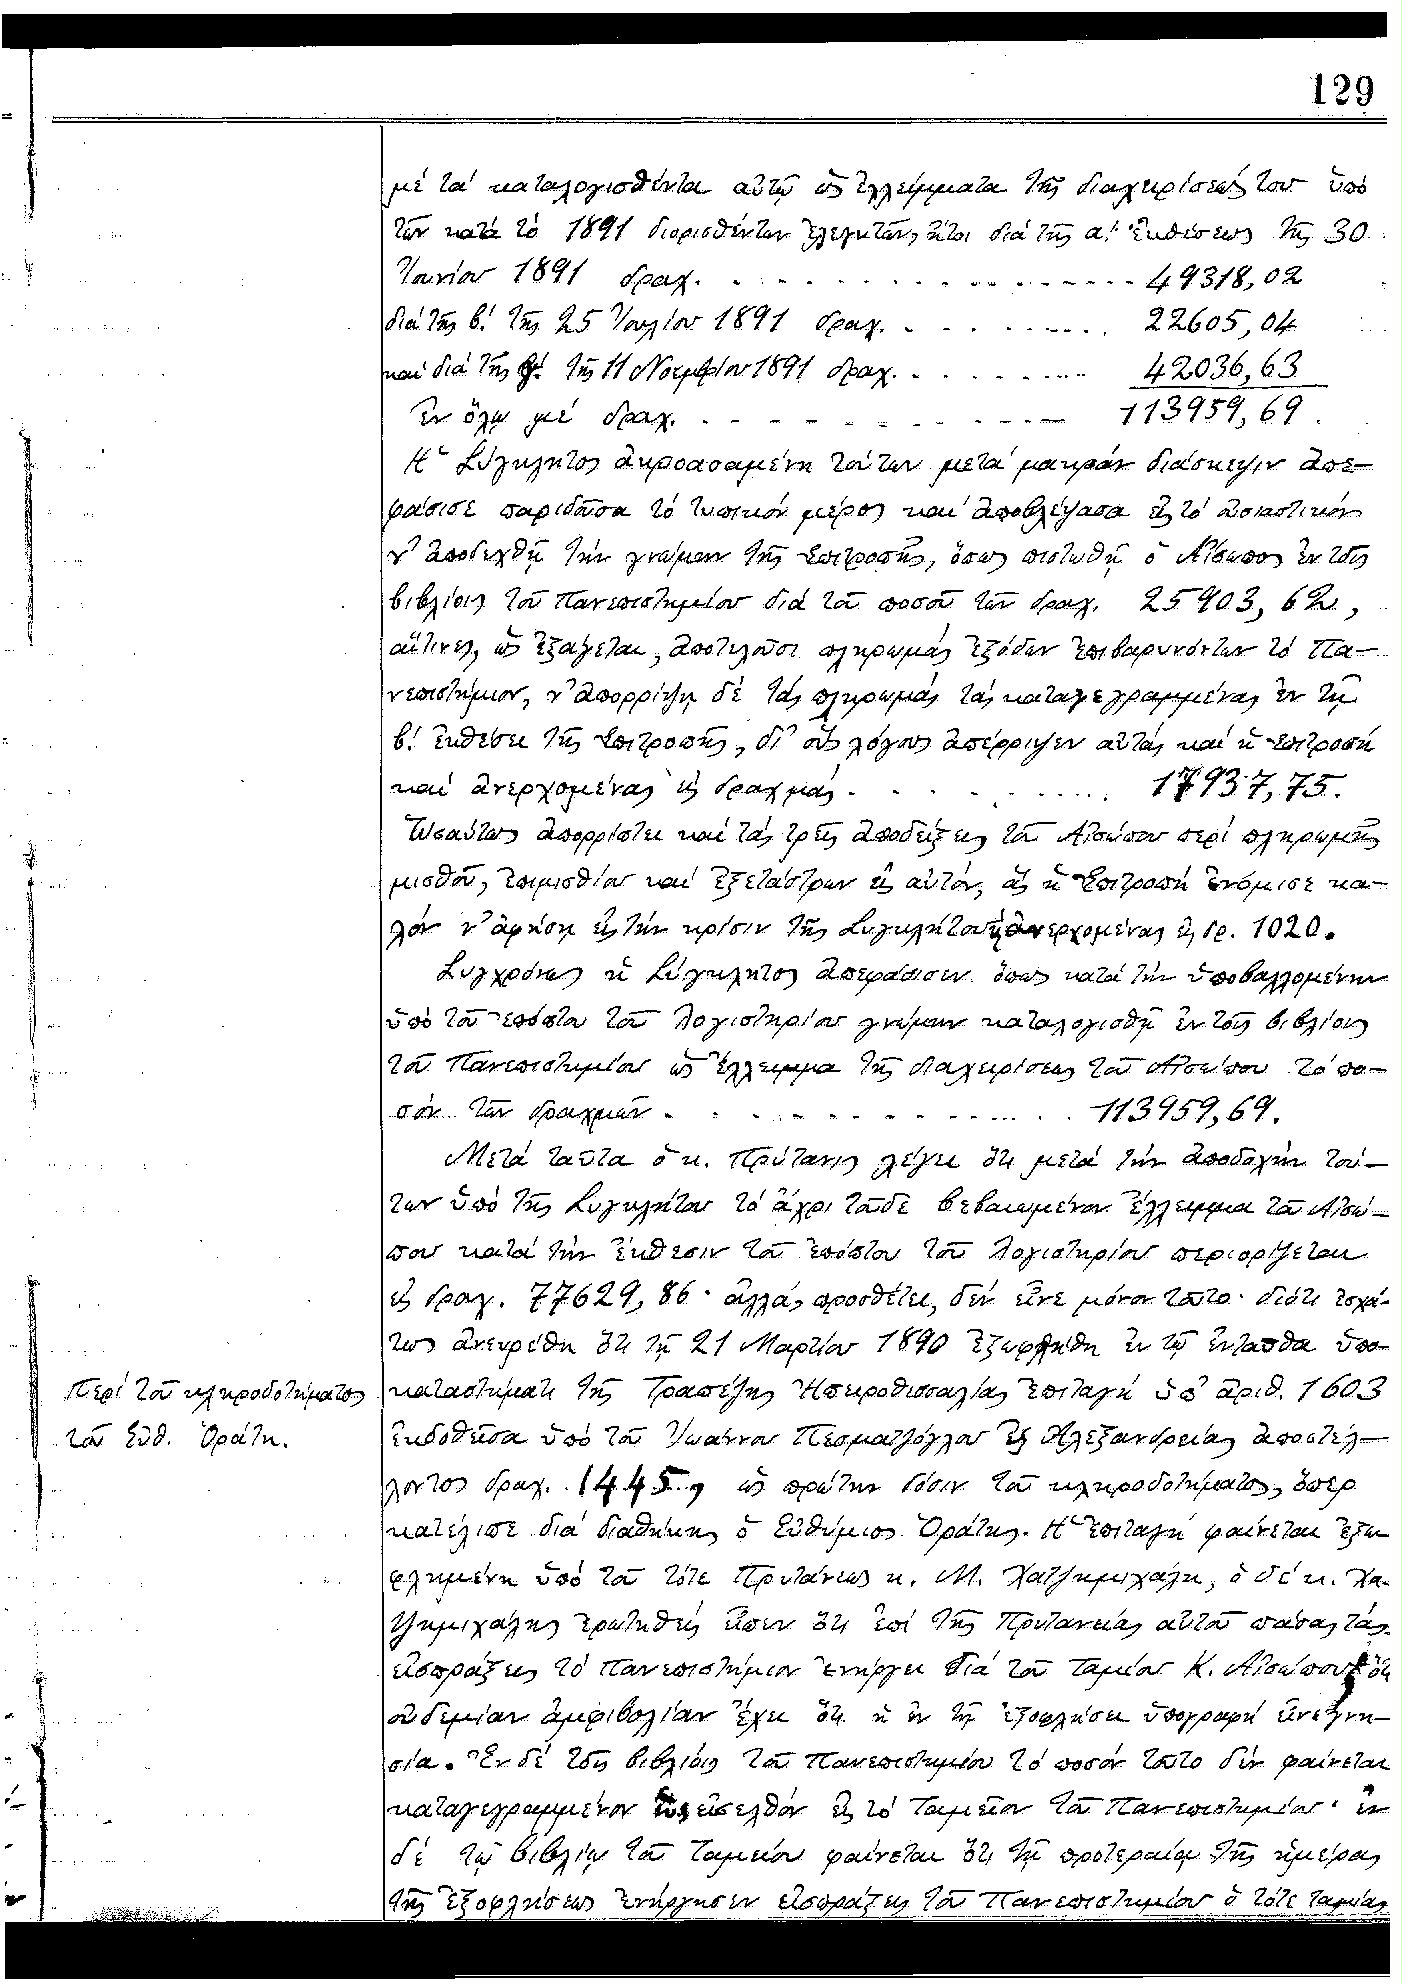 129
μέ τά καταλογισθέντα αὐτῷ ὡς ἐλλείμματα τῆς διαχειρίσεώς του ὑπό
τῶν κατά τό 1891 διορισθέντων ἐλεγκτῶν, ἤτοι διά τῆς α! ἐκθέσεως τῆς 30
Ἰουνίου 1891 δραχ. 49318,02
διά τῆς β! τῆς 25 Ἰουλίου 1891 δραχ. 22605,04
καί διά τῆς γ! τῆς 11 Νοεμβρίου 1891 δραχ. 42036,63
ἐν ὅλῳ μέ δραχ. 113959,69.
Ἡ Σύγκλητος ἀκροασαμένη τούτων μετά μακράν διάσκεψιν ἀπε-
φάσισε παριδοῦσα τό τυπικόν μέρος καί ἀποβλέψασα εἰς τό οὐσιαστικόν
ν' ἀποδεχθῇ τήν γνώμην τῆς Ἐπιτροπῆς, ὅπως πιστωθῇ ὁ Αἴσωπος ἐν τοῖς
βιβλίοις τοῦ Πανεπιστημίου διά τοῦ ποσοῦ τῶν δραχ. 25903,62,
αἵτινες, ὡς ἐξάγεται, ἀποτελοῦσι πληρωμάς ἐξόδων ἐπιβαρυνόντων τό Πα-
νεπιστήμιον, ν' ἀπορρίψῃ δέ τάς πληρωμάς τάς καταγεγραμμένας ἐν τῇ
β! ἐκθέσει τῆς Ἐπιτροπῆς, δι' οὕς λόγους ἀπέρριψεν αὐτάς καί ἡ Ἐπιτροπή
καί ἀνερχομένας εἰς δραχμάς 17937,75.
Ὡσαύτως ἀπορρίπτει καί τάς τρεῖς ἀποδείξεις τοῦ Αἰσώπου περί πληρωμῆς
μισθοῦ, ἐπιμισθίου καί ἐξετάστρων εἰς αὐτόν, ἅς ἡ Ἐπιτροπή ἐνόμισε κα-
λόν ν' ἀφήσῃ εἰς τήν κρίσιν τῆς Συγκλήτου ἀνερχομένας εἰς δρ. 1020.
Συγχρόνως ἡ Σύγκλητος ἀπεφάσισεν ὅπως κατά τήν ὑποβαλλομένην
ὑπό τοῦ ἐπόπτου τοῦ Λογιστηρίου γνώμην καταλογισθῇ ἐν τοῖς βιβλίοις
τοῦ Πανεπιστημίου ὡς ἔλλειμμα τῆς διαχειρίσεως τοῦ Αἰσώπου τό πο-
σόν τῶν δραχμῶν 113959,69.
Μετά ταῦτα ὁ κ. Πρύτανις λέγει ὅτι μετά τήν ἀποδοχήν τού-
των ὑπό τῆς Συγκλήτου τό ἄχρι τοῦδε βεβαιωμένον ἔλλειμμα τοῦ Αἰσώ-
που κατά τήν ἔκθεσιν τοῦ ἐπόπτου τοῦ Λογιστηρίου περιορίζεται
εἰς δραχ. 77629,86· ἀλλά, προσθέτει, δέν εἶνε μόνον τοῦτο· διότι ἐσχά-
τως ἀνευρέθη ὅτι τῇ 21 Μαρτίου 1890 ἐξωφλήθη ἐν τῷ ἐνταῦθα ὑπο-
Περί τοῦ κληροδοτήματος
τοῦ Εὐθ. Ὁράτη.
καταστήματι τῆς Τραπέζης Ἠπειροθεσσαλίας ἐπιταγή ὑπ' ἀριθ. 1603
ἐκδοθεῖσα ὑπό τοῦ Ἰωάννου Πεσματζόγλου ἐξ Ἀλεξανδρείας ἀποστέλ-
λοντος δραχ. 1445, ὡς πρώτην δόσιν τοῦ κληροδοτήματος, ὅπερ
κατέλιπε διά διαθήκης ὁ Εὐθύμιος Ὁράτης. Ἡ ἐπιταγή φαίνεται ἐξω-
φλημένη ὑπό τοῦ τότε Πρυτάνεως κ. Μ. Χατζημιχάλη, ὁ δέ κ. Χα-
τζημιχάλης ἐρωτηθείς εἶπεν ὅτι ἐπί τῆς Πρυτανείας αὐτοῦ πάσας τάς
εἰσπράξεις τό Πανεπιστήμιον ἐνήργει διά τοῦ ταμίου Κ. Αἰσώπου ὅτι
οὐδεμίαν ἀμφιβολίαν ἔχει ὅτι ἡ ἐν τῇ ἐξοφλήσει ὑπογραφή εἶνε γνη-
σία. Ἐν δέ τοῖς βιβλίοις τοῦ Πανεπιστημίου τό ποσόν τοῦτο δέν φαίνεται
καταγεγραμμένον ὡς εἰσελθόν εἰς τό Ταμεῖον τοῦ Πανεπιστημίου· ἐν
δέ τῷ βιβλίῳ τοῦ Ταμείου φαίνεται ὅτι τῇ προτεραίᾳ τῆς ἡμέρας
τῆς ἐξοφλήσεως ἐνήργησεν εἰσπράξεις τοῦ Πανεπιστημίου ὁ τότε ταμίας